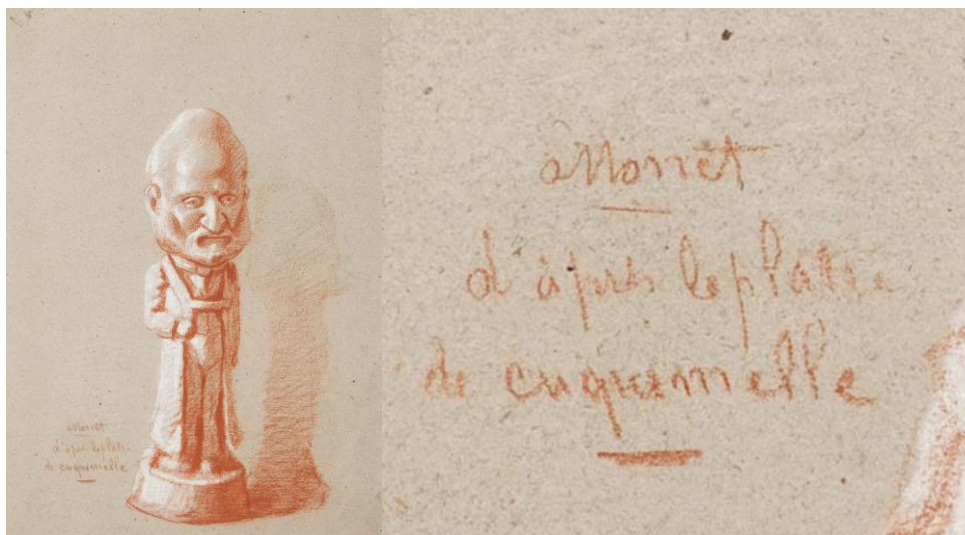 O Monet
d'après le platre
de cuquemelle
O Monet
d'après le platre
de cuquemelle